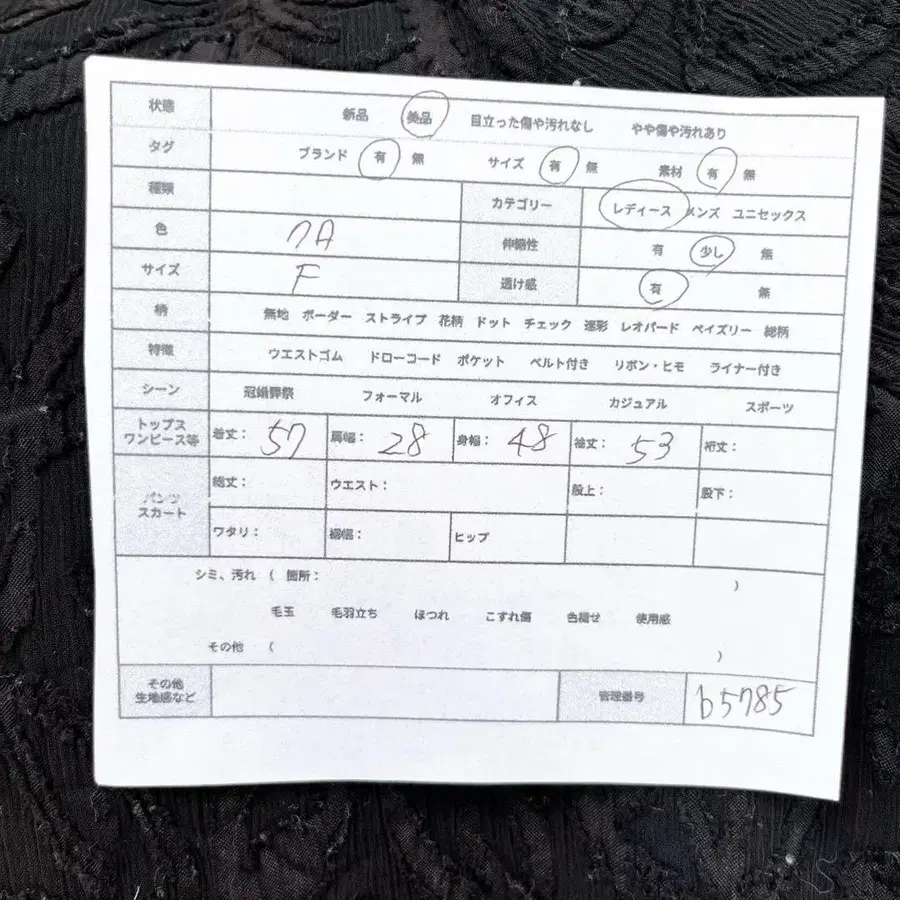 状態 新品 美品 目立った傷や汚れなし やや傷や汚れあり
タグ ブランド 有 無 サイズ 有 無 素材 有 無
種類 カテゴリー レディース メンズ ユニセックス
色 伸縮性 有 少し 無
サイズ F 透け感 有 無
柄 無地 ボーダー ストライプ 花柄 ドット チェック 迷彩 レオパード ペイズリー 総柄
特徴 ウエストゴム ドローコード ポケット ベルト付き リボン・ヒモ ライナー付き
シーン 冠婚葬祭 フォーマル オフィス カジュアル スポーツ
トップス
ワンピース等 着丈: 57 肩幅: 28 身幅: 48 袖丈: 53 裄丈:
パンツ
スカート 総丈: ウエスト: 股上: 股下:
ワタリ: 裾幅: ヒップ
シミ、汚れ ( 箇所: )
毛玉 毛羽立ち ほつれ こすれ傷 色褪せ 使用感
その他 ( )
その他
生地感など 管理番号 b5785